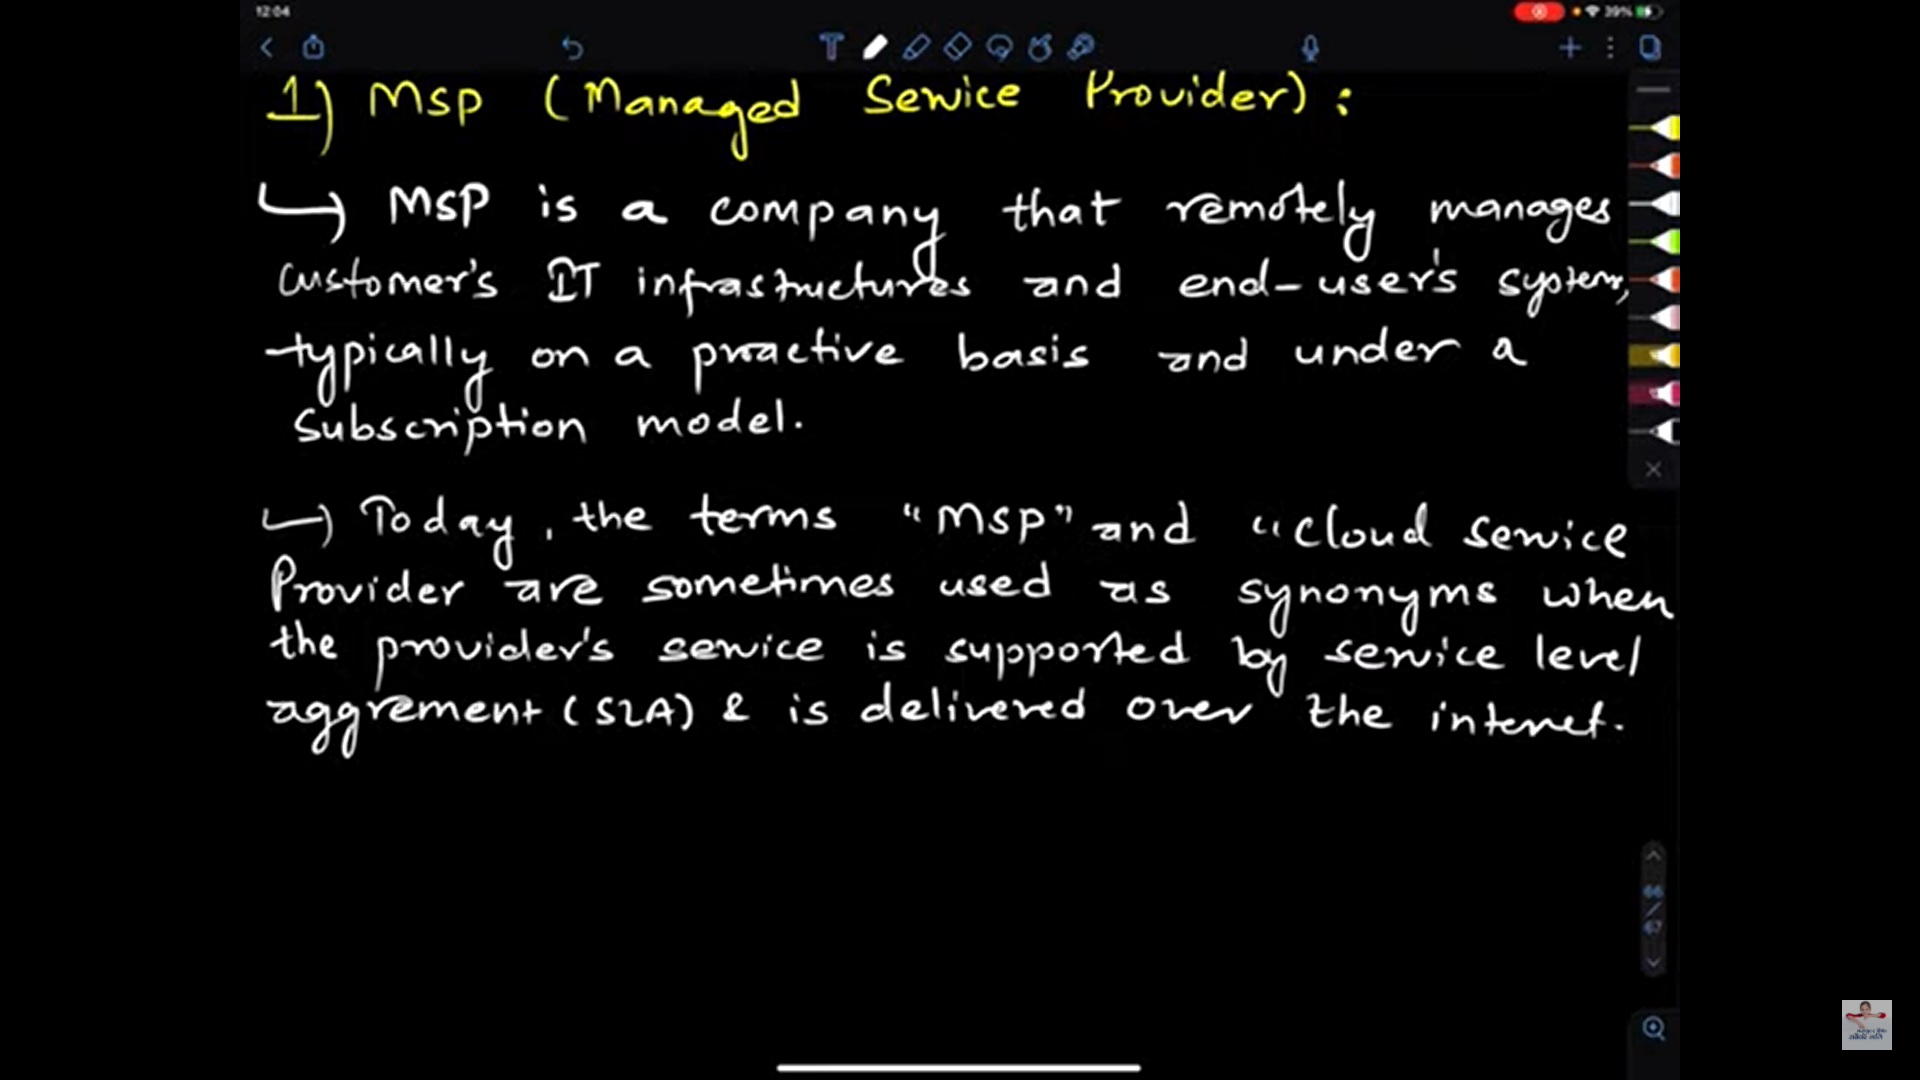 12:04
39%
1) MSP (Managed Service Provider) :
↳ MSP is a company that remotely manages
customer's IT infrastructures and end-user's system,
typically on a proactive basis and under a
subscription model.
↳ Today, the terms "MSP" and "Cloud service
Provider are sometimes used as synonyms when
the provider's service is supported by service level
aggrement (SLA) & is delivered over the internet.
66
/
67